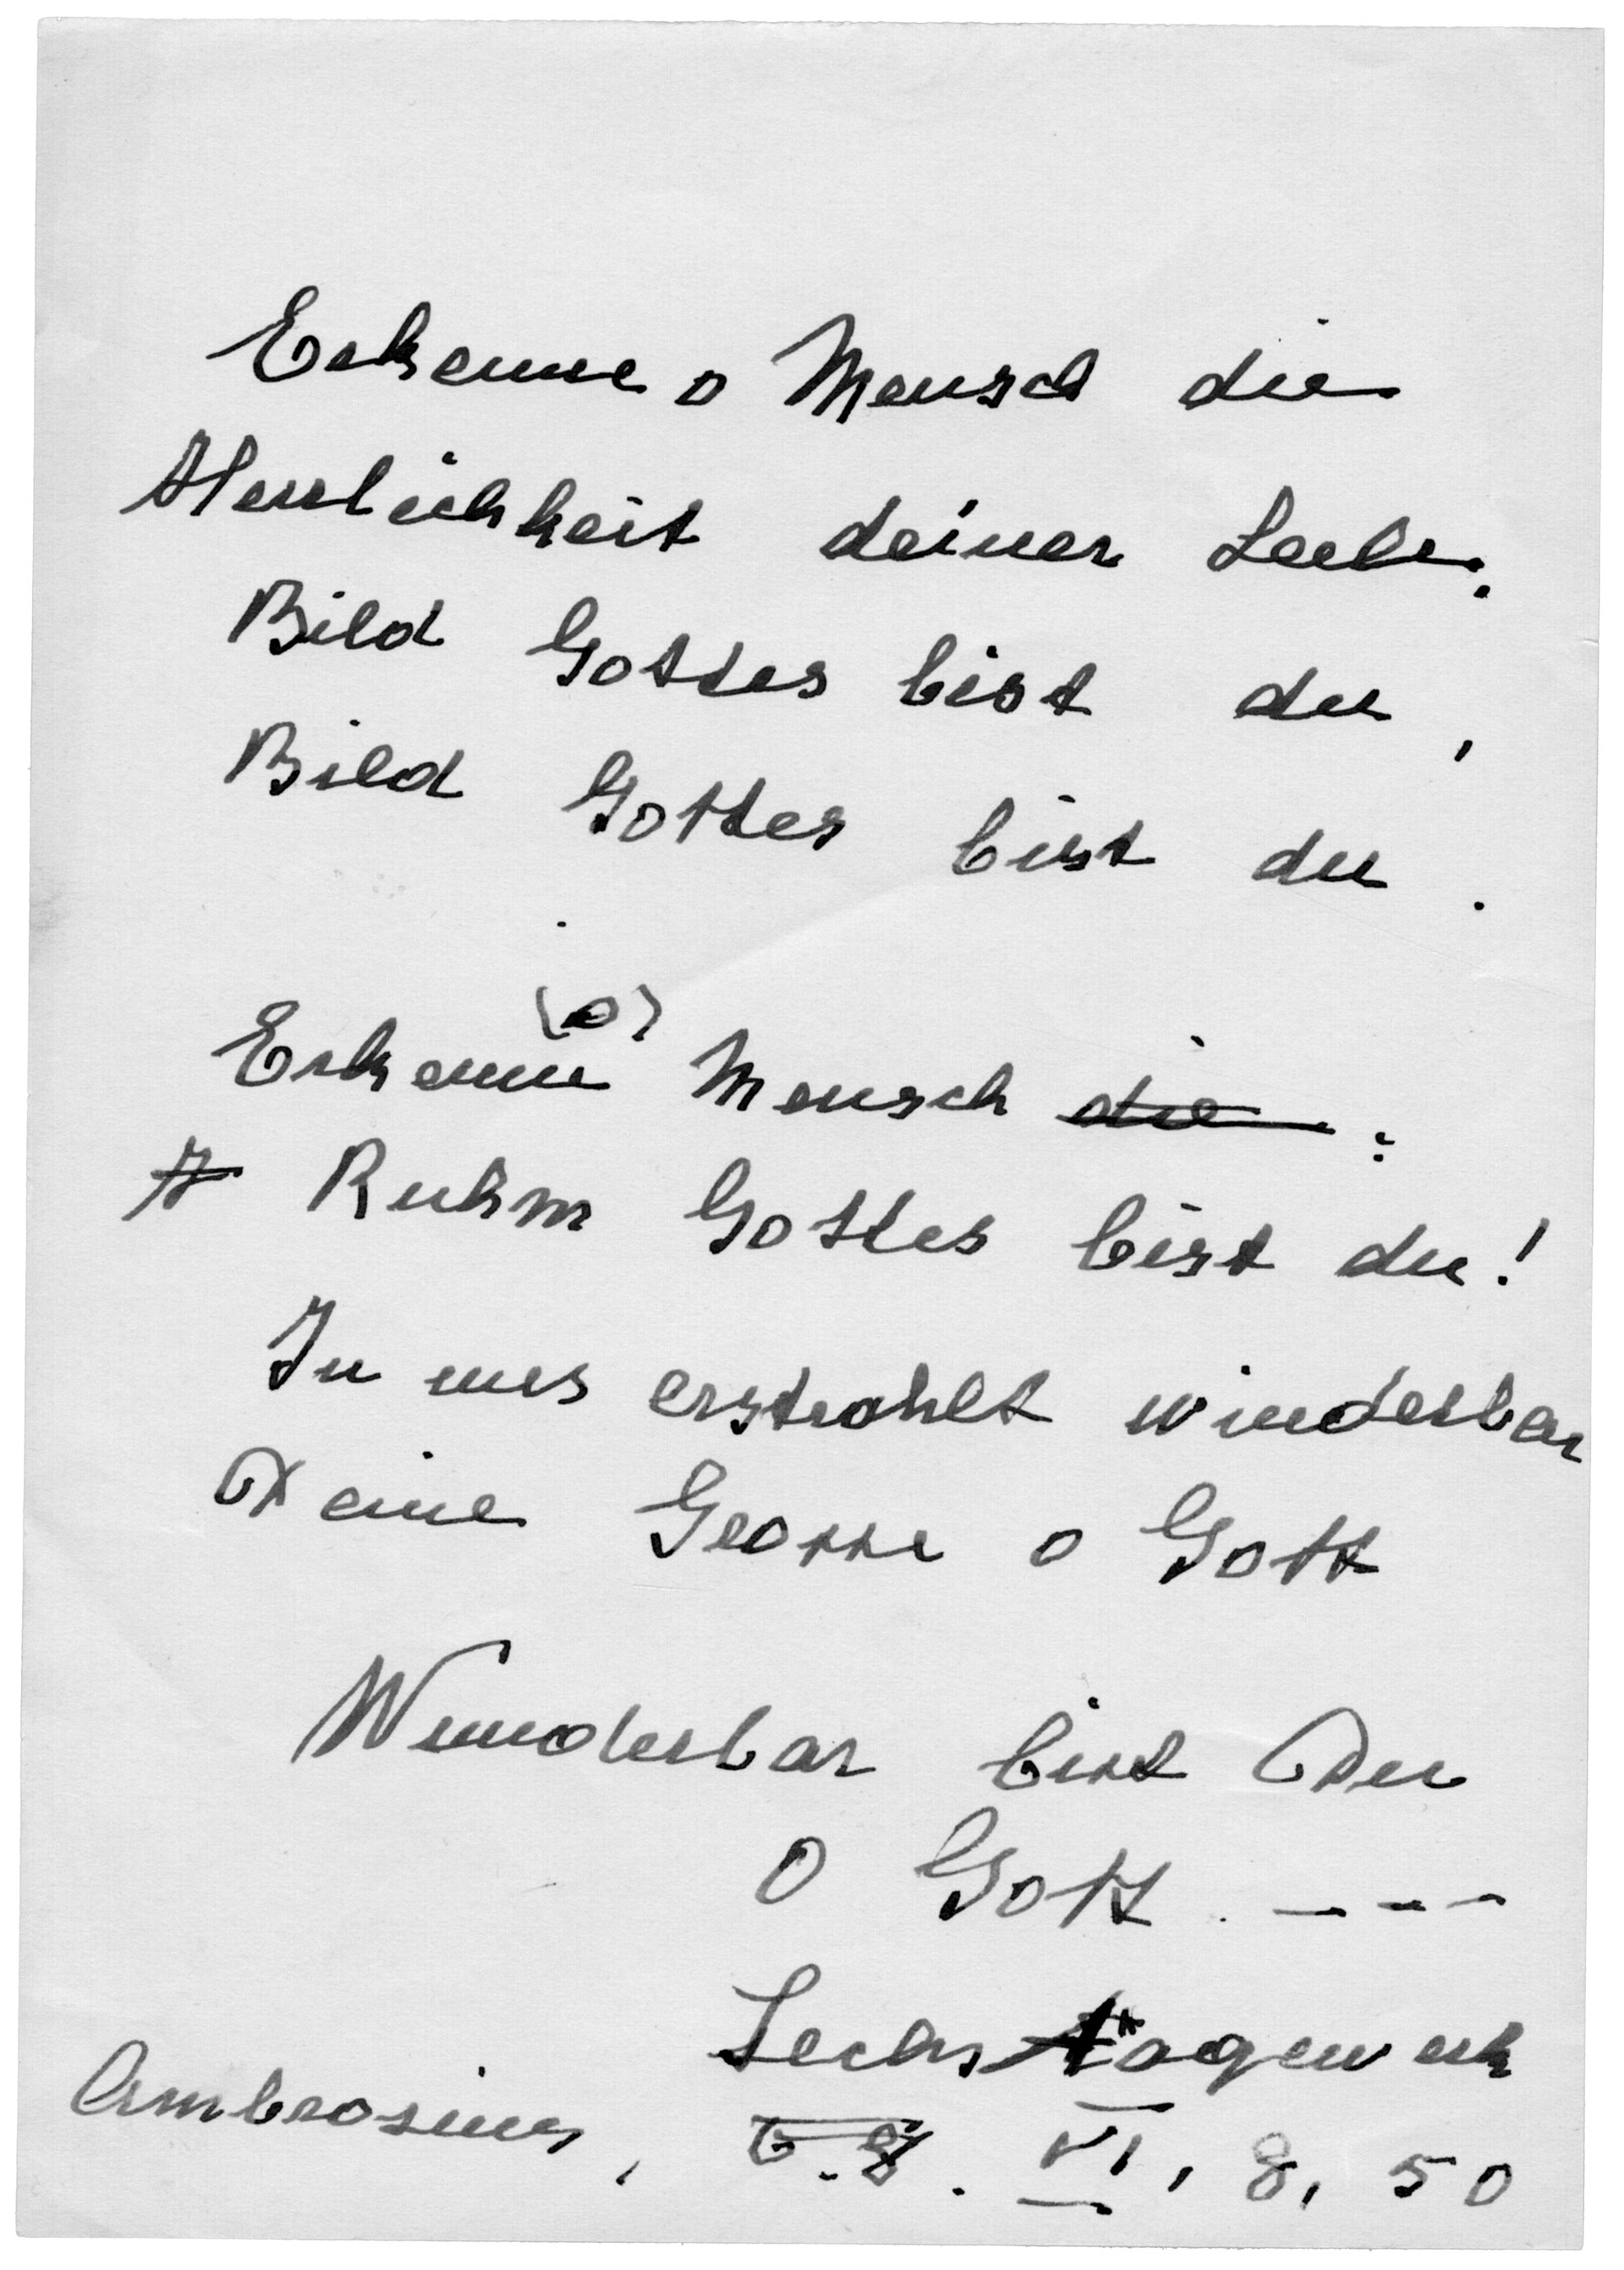 Erkenne o Mensch die
Herrlichkeit deiner Seele:
Bild Gottes bist du,
Bild Gottes bist du.
(o)
Erkenne Mensch die:
H Ruhm Gottes bist du!
In uns erstrahlt wunderbar
Deine Grösse o Gott
Wunderbar bist Du
O Gott. ---
Sechstagewerk
Ambrosius, 6.8. VI, 8, 50